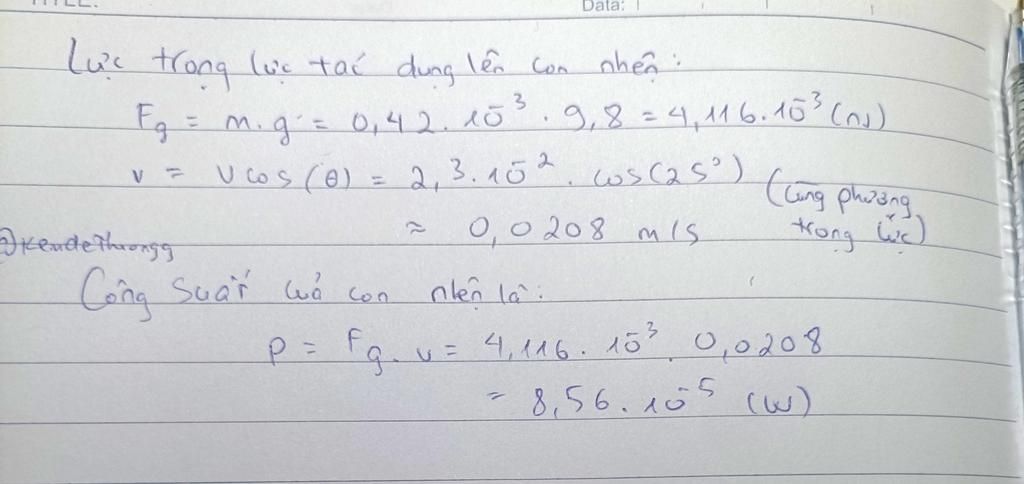 Data:
Lực trọng lực tác dụng lên con nhện:
Fg = m.g = 0,42.10⁻³.9,8 = 4,116.10⁻³ (N)
v = v cos(θ) = 2,3.10⁻².cos(25°) (Cùng phương
≈ 0,0208 m/s trọng lực)
Công suất của con nhện là:
P = Fg.v = 4,116.10⁻³.0,0208
= 8,56.10⁻⁵ (W)